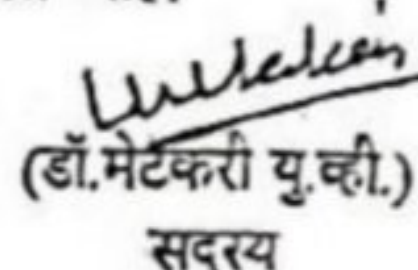 (डॉ.मेटकरी यु.व्ही.)
सदस्य